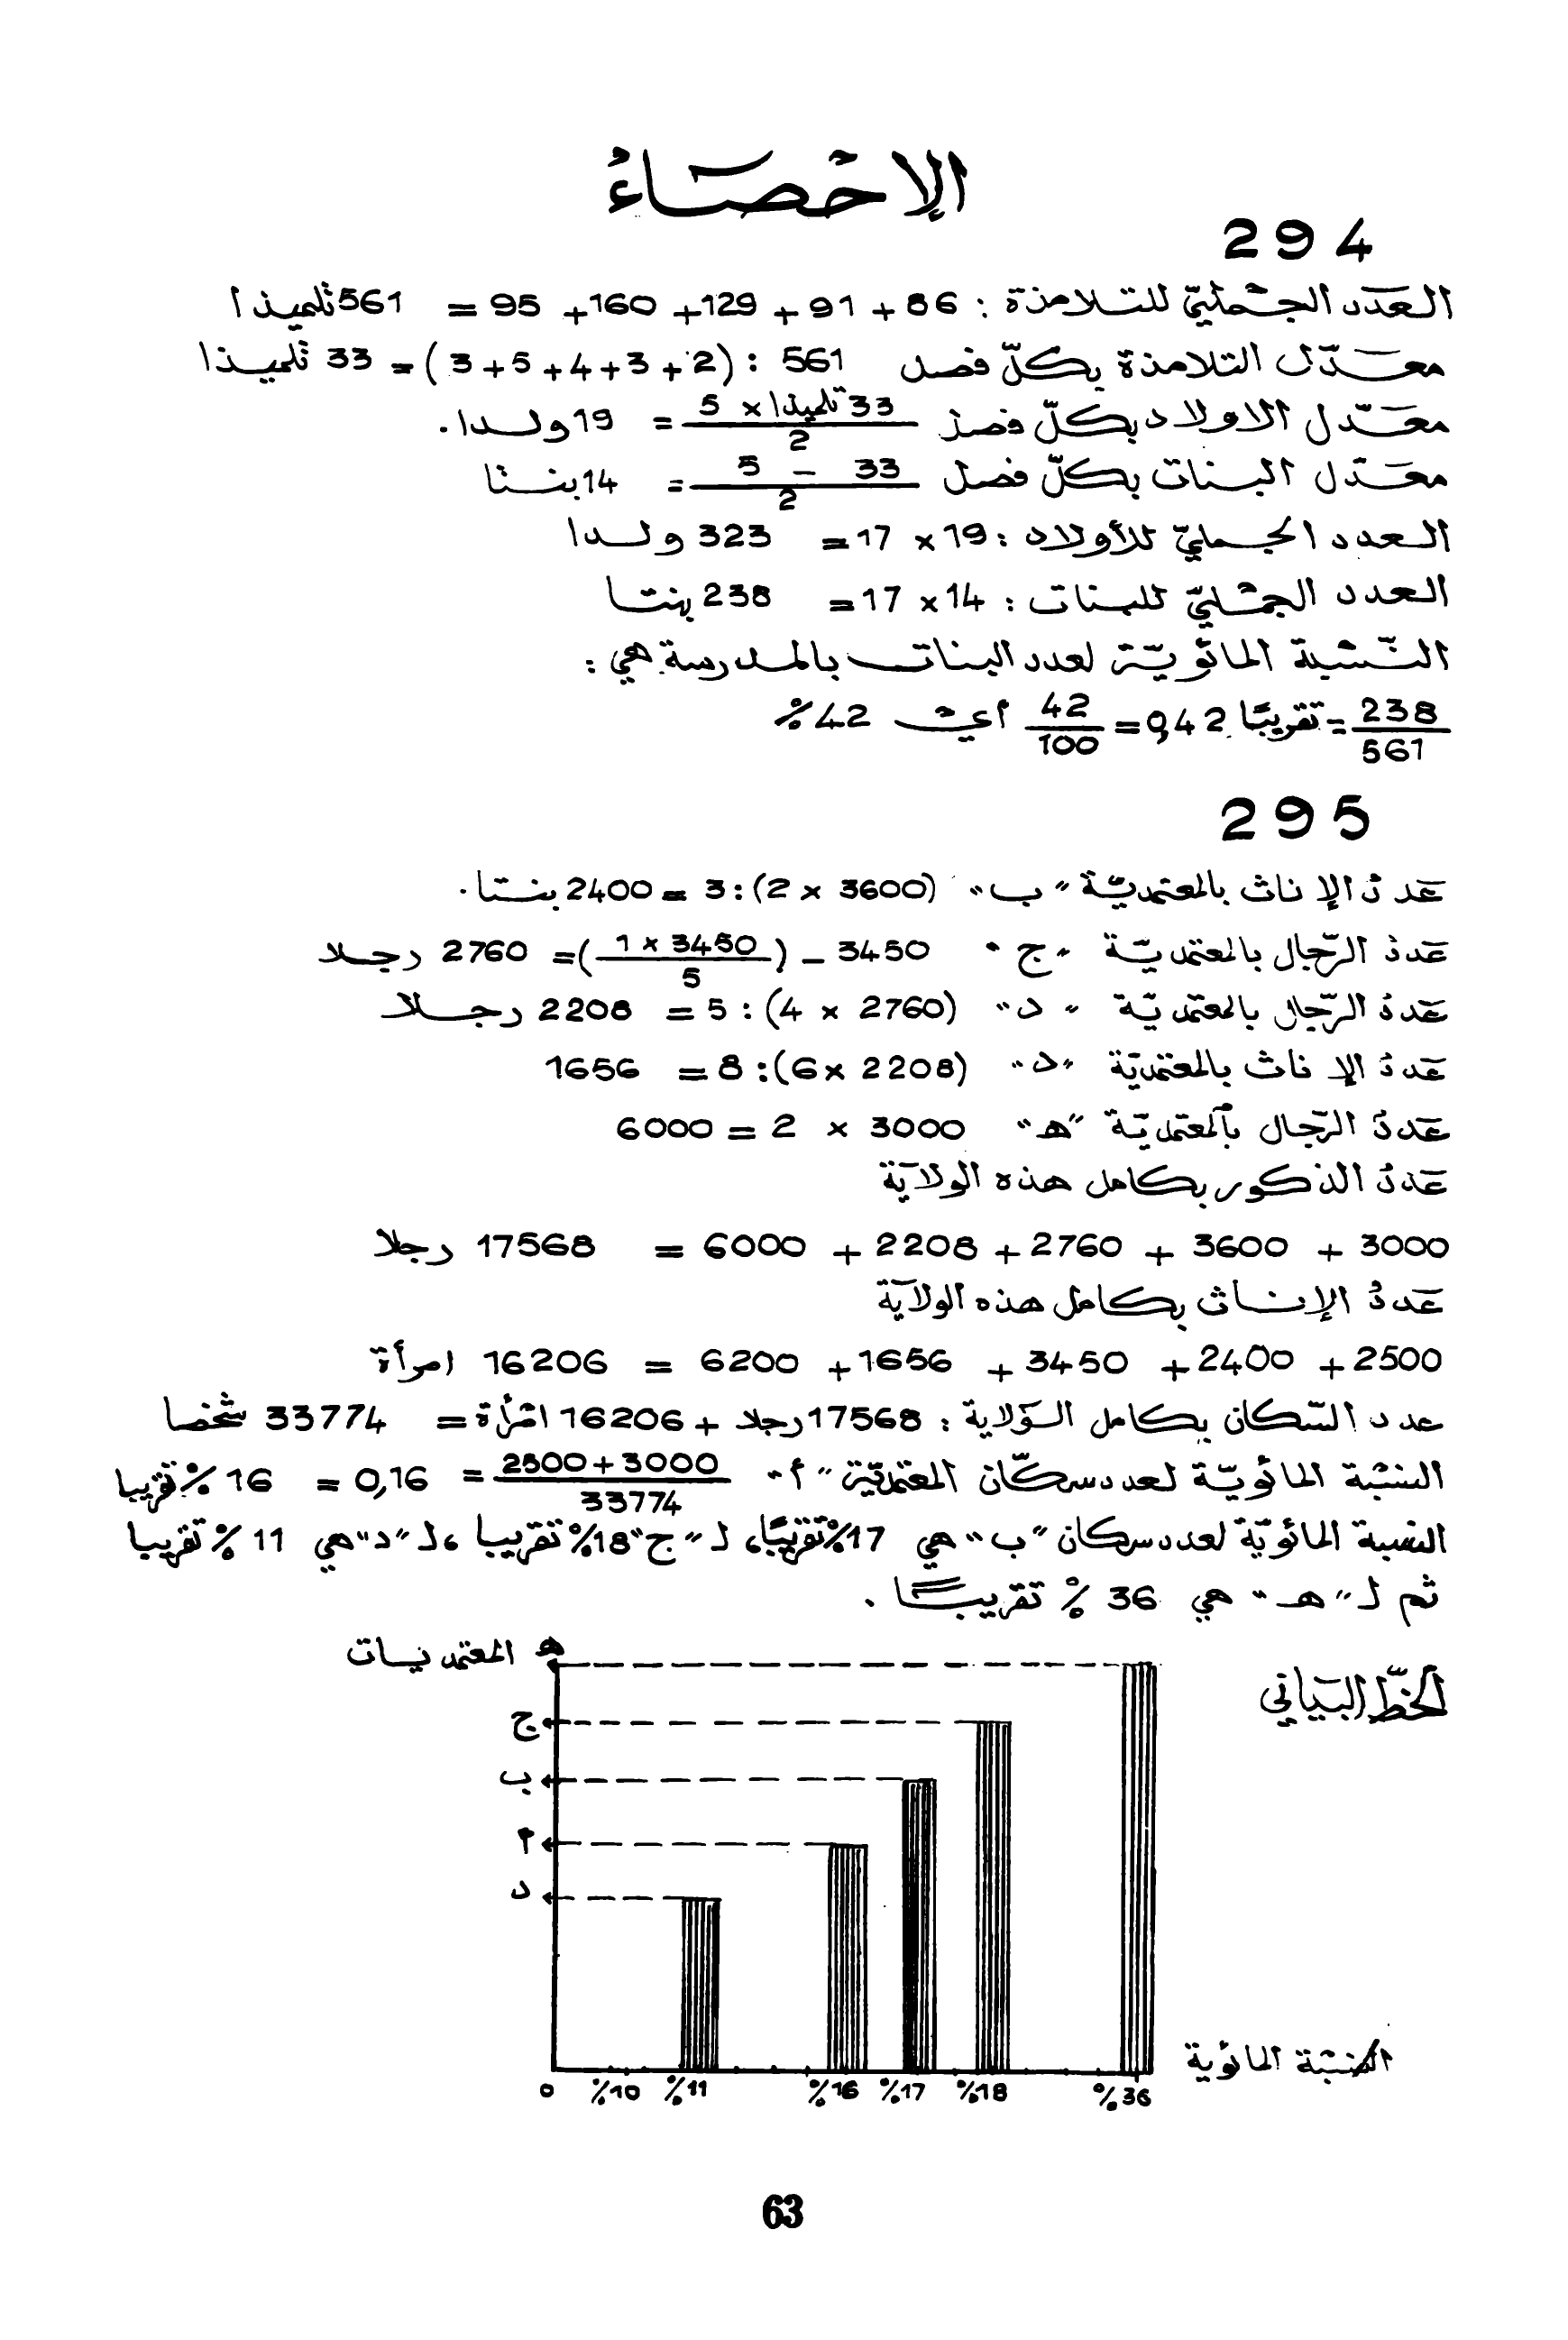 الإحصاء
294
العدد الجملي للتلامذة : 86 + 91 + 129 + 160 + 95 = 561 تلميذا
معدّل التلامذة بكلّ فصل 561 : (2 + 3 + 4 + 5 + 3) = 33 تلميذا
معدّل الاولاد بكلّ فصل 33 تلميذا × 5 / 2 = 19 ولدا .
معدّل البنات بكلّ فصل 33 – 5 / 2 = 14 بنتا
العدد الجملي للأولاد : 19 × 17 = 323 ولدا
العدد الجملي للبنات : 14 × 17 = 238 بنتا
النسبة المائويّة لعدد البنات بالمدرسة هي :
238 / 561 = تقريبًا 0,42 = 42 / 100 أي 42 %
295
عدد الإناث بالمعتمديّة "ب" (3600 × 2) : 3 = 2400 بنتا .
عدد الرّجال بالمعتمديّة "ج" 3450 – (3450 × 1 / 5) = 2760 رجلا
عدد الرّجال بالمعتمديّة "د" (2760 × 4) : 5 = 2208 رجلا
عدد الإناث بالمعتمديّة "د" (2208 × 6) : 8 = 1656
عدد الرّجال بالمعتمديّة "هـ" 3000 × 2 = 6000
عدد الذكور بكامل هذه الولاية
3000 + 3600 + 2760 + 2208 + 6000 = 17568 رجلا
عدد الإناث بكامل هذه الولاية
2500 + 2400 + 3450 + 1656 + 6200 = 16206 امرأة
عدد السّكان بكامل الولاية : 17568 رجلا + 16206 امرأة = 33774 شخصا
النسبة المائويّة لعدد سكّان المعتمديّة "أ" 3000 + 2500 / 33774 = 0,16 = 16 % تقريبا
النسبة المائويّة لعدد سكان "ب" هي 17 % تقريبًا، لـ "ج" 18 % تقريبا ، لـ "د" هي 11 % تقريبا
ثم لـ "هـ" هي 36 % تقريبًا .
الخطّ البياني
المعتمديات
هـ
ج
ب
أ
د
النسبة المائوية
0 %10 %11 %16 %17 %18 %36
63